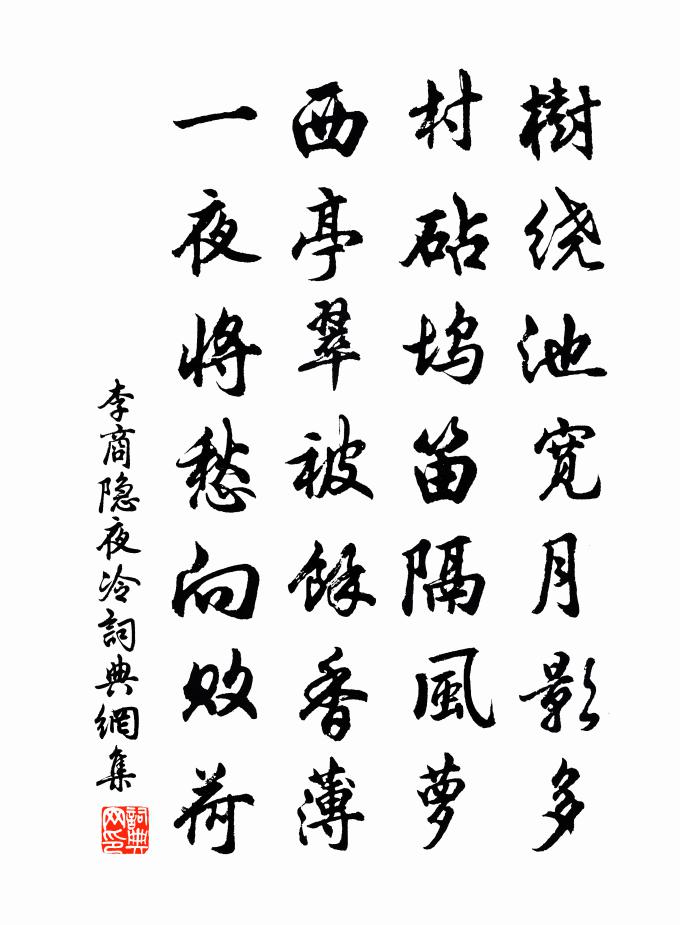 樹绕池宽月影多
村砧坞笛隔風萝
西亭翠被餘香薄
一夜将愁向败荷
李商隐夜冷詞典網集
詞典
网印